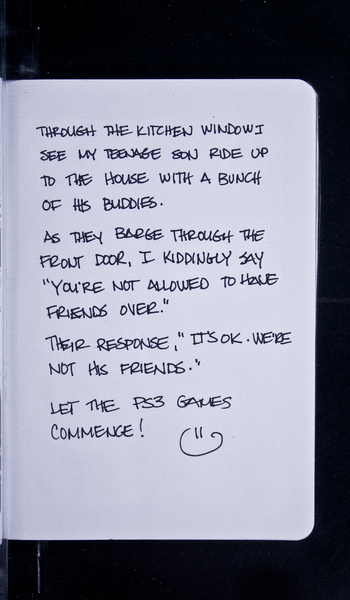 THROUGH THE KITCHEN WINDOW I
SEE MY TEENAGE SON RIDE UP
TO THE HOUSE WITH A BUNCH
OF HIS BUDDIES.
AS THEY BARGE THROUGH THE
FRONT DOOR, I KIDDINGLY SAY
"YOU'RE NOT ALLOWED TO HAVE
FRIENDS OVER."
THEIR RESPONSE, "IT'S OK. WE'RE
NOT HIS FRIENDS."
LET THE PS3 GAMES
COMMENCE!